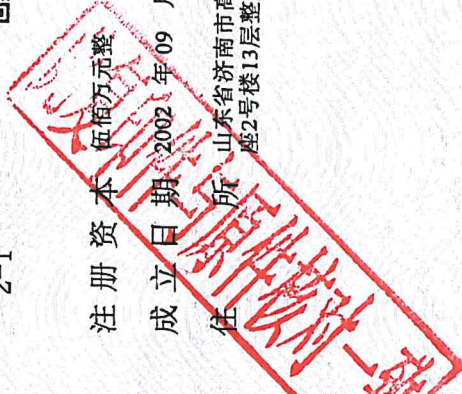 2-1
注册资本 伍佰万元整
成立日期 2002 年 09 月
住所 山东省济南市高
座2号楼13层整
复印件与原件核对一致